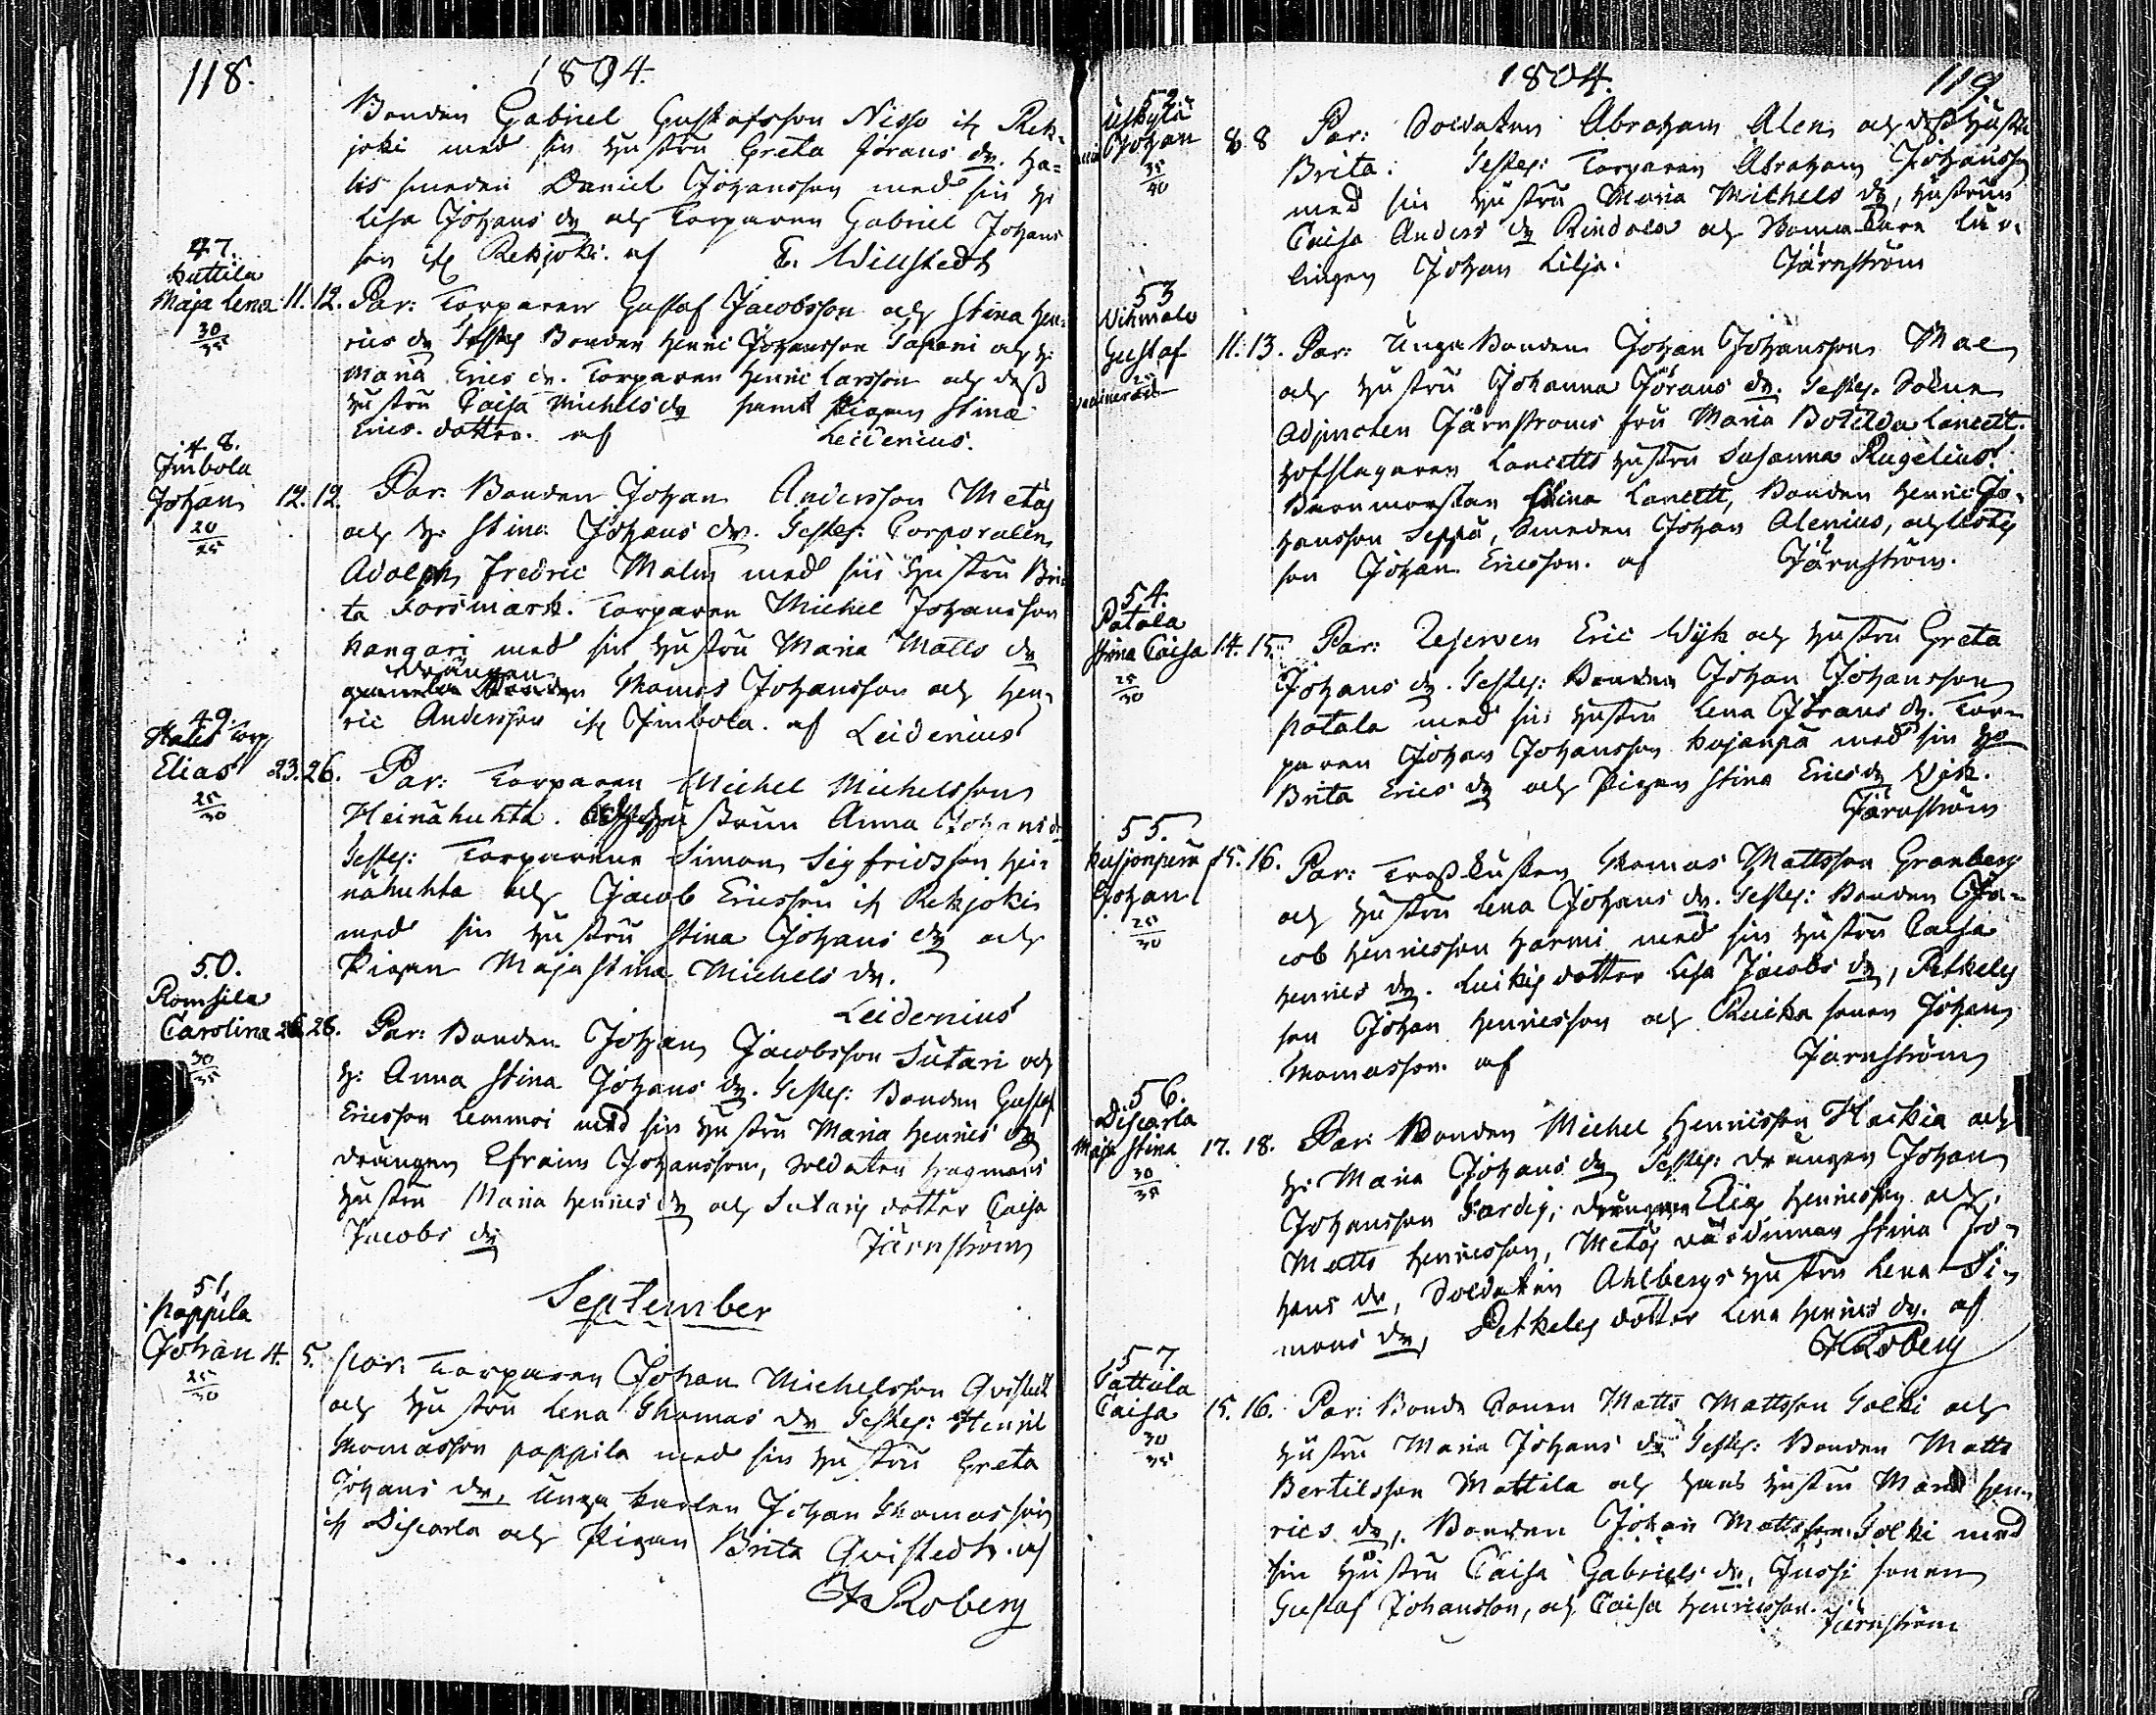 118.
1804.
Bonden Gabriel Gustafsson Nisso ifr Rek-
joki med sin hustru Greta Jörans dr. Ha-
lis smeden Daniel Johansson med sin h:
Lisa Johans dr och Torparen Gabriel Johans
son ifr Rekjoki. af E. Willstedt
47.
Kuttila
Maja Lena 11. 12. Par: Torparen Gustaf Jacobsson och Stina Hen-
30/35
rics dr Testes Bonden Henric Johansson Tapani och h:
Maria Erics dr. Torparen Henric Larsson och dess
hustru Caisa Michels dr samt Pigan Stina
Erics dotter. af Leidenius.
48.
Imbola
Johan 12. 12. Par: Bonden Johan Andersson Metäs
20/25
och h: Stina Johans dr. Testes: Corporalen
Adolph Fredric Malm med sin hustru Bri-
ta Forsmark. Torparen Michel Johansson
Kangari med sin hustru Maria Matts dr
drängen
Thomas Johansson och Hen-
ric Andersson ifr Jimbola. af Leidenius
49.
Halis Torp
Elias 23. 26. Par: Torparen Michel Michelsson
25/30
Heinähuhta. och hustrun Anna Johans dr
Testes: Torparene Simon Sigfridsson Hei-
nähuhta och Jacob Ericsson ifr Rekjokis
med sin hustru Stina Johans dr och
Pigan Maja Stina Michels dr.
Leidenius
50.
Romsila
Carolina 26. 28. Par: Bonden Johan Jacobsson Sutari och
30/35
h: Anna Stina Johans dr. Testes: Bonden Gustaf
Ericsson Lemmoi med sin hustru Maria Henrics dr
drängen Efraim Johansson, Soldaten Hagmans
hustru Maria Henrics dr och Sutaris dotter Caisa
Jacobs dr Järnström
September
51.
Pappila
Johan 4. 5. Par: Torparen Johan Michelsson Qvistedt
25/30
och hustru Lena Thomas dr Testes: Henric
Thomasson Pappila med sin hustru Greta
Johans dr, Unga Karlen Johan Thomasson
ifr Discarla och Pigan Brita Qvistedt. af
H Roberg
1804. 119.
52.
Uskylä
Johan 8. 8 Par: Soldaten Abraham Alen och dess hustru
35/40
Brita: Testes: Torparen Abraham Johansson
med sin hustru Maria Michels dr, hustrun
Caisa Anders dr Rindola och Skomakare Lär-
lingen Johan Lilja. Järnström
53
Wihmalo
Gustaf 11. 13. Par: Unga Bonden Johan Johansson Mae
25
och hustru Johanna Jörans dr. Testes. Sockne
Adjuncten Järnströms fru Maria Botilda Lancett.
Hofslagaren Lancetts hustru Susanna Rugelius.
Barnmorskan Stina Lancett, Bonden Henric Jo-
hansson Seppä, Smeden Johan Alenius, och
son Johan Ericsson. af Järnström.
54.
Patala
Stina Caisa 14. 15. Par: Reserven Eric Wijk och hustru Greta
25/30
Johans dr. Testes: Bonden Johan Johansson
Patala med sin hustru Lena Jörans dr. Tor-
paren Johan Johansson Kujanpä med sin h:
Brita Erics dr och Pigan Stina Erics dr Wijk.
Järnström
55.
Kujanperä
Johan 15. 16. Par: Trosskusken Thomas Mattsson Granberg
25/30
och hustru Lena Johans dr. Testes: Bonden Ja-
cob Henricsson Harmi med sin hustru Caisa
Henrics dr. dotter Lisa Jacobs dr, Petkeles
son Johan Henricsson och sonen Johan
Thomasson. af Järnström
56.
Discarla
Maja Stina 17. 18. Par: Bonden Michel Henricsson Hackia och
30/35
h: Maria Johans dr Testes: drängen Johan
Johansson Sardis, drängen Elias Henricsson och
Matts Henricsson, Metäs värdinnan Stina Jo-
hans dr, Soldaten Ahlbergs hustru Lena Si-
mons dr, Petkeles dotter Lena Henrics dr. af
H Roberg
57.
Tattula
Caisa 15. 16. Par: Bonde Sonen Matts Mattsson Golki och
30/35
hustru Maria Johans dr Testes: Bonden Matts
Bertilsson Mattila och hans hustru Maria Hen-
rics dr, Bonden Johan Mattsson Golki med
sin hustru Caisa Gabriels dr, Jussi sonen
Gustaf Johansson, och Caisa Henricsson. Järnström